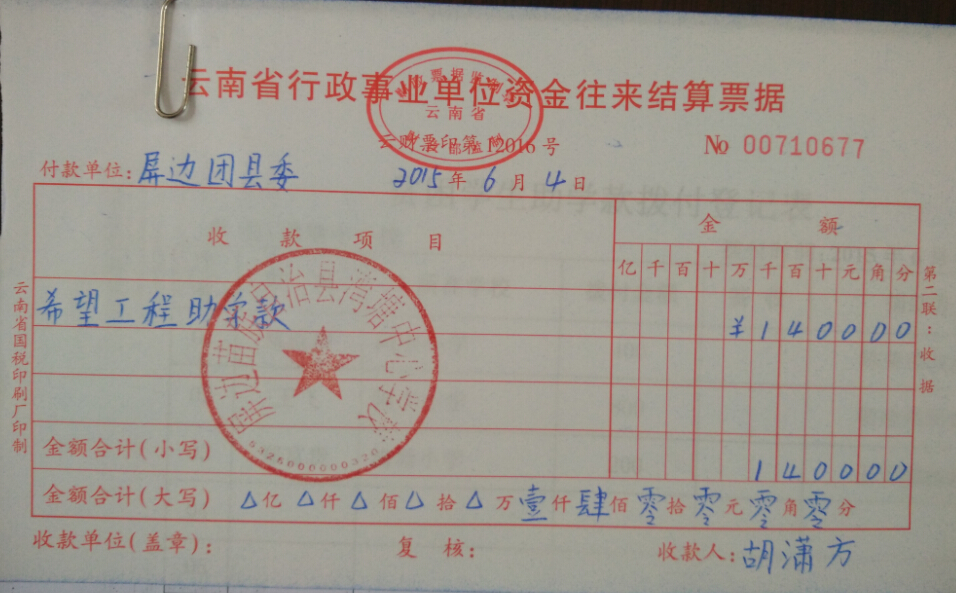 云南省行政事业单位资金往来结算票据
云南省
云财票印第12016号
No 00710677
付款单位:屏边团县委
2015年6月4日
收款项目
金额
亿千百十万千百十元角分
希望工程助学款
¥140000
金额合计(小写)
140000
金额合计(大写) △亿△仟△佰△拾△万壹仟肆佰零拾零元零角零分
收款单位(盖章):
复核:
收款人:胡潇方
屏边苗族自治县湾塘中心学校
云南省国税印刷厂印制
第二联:收据